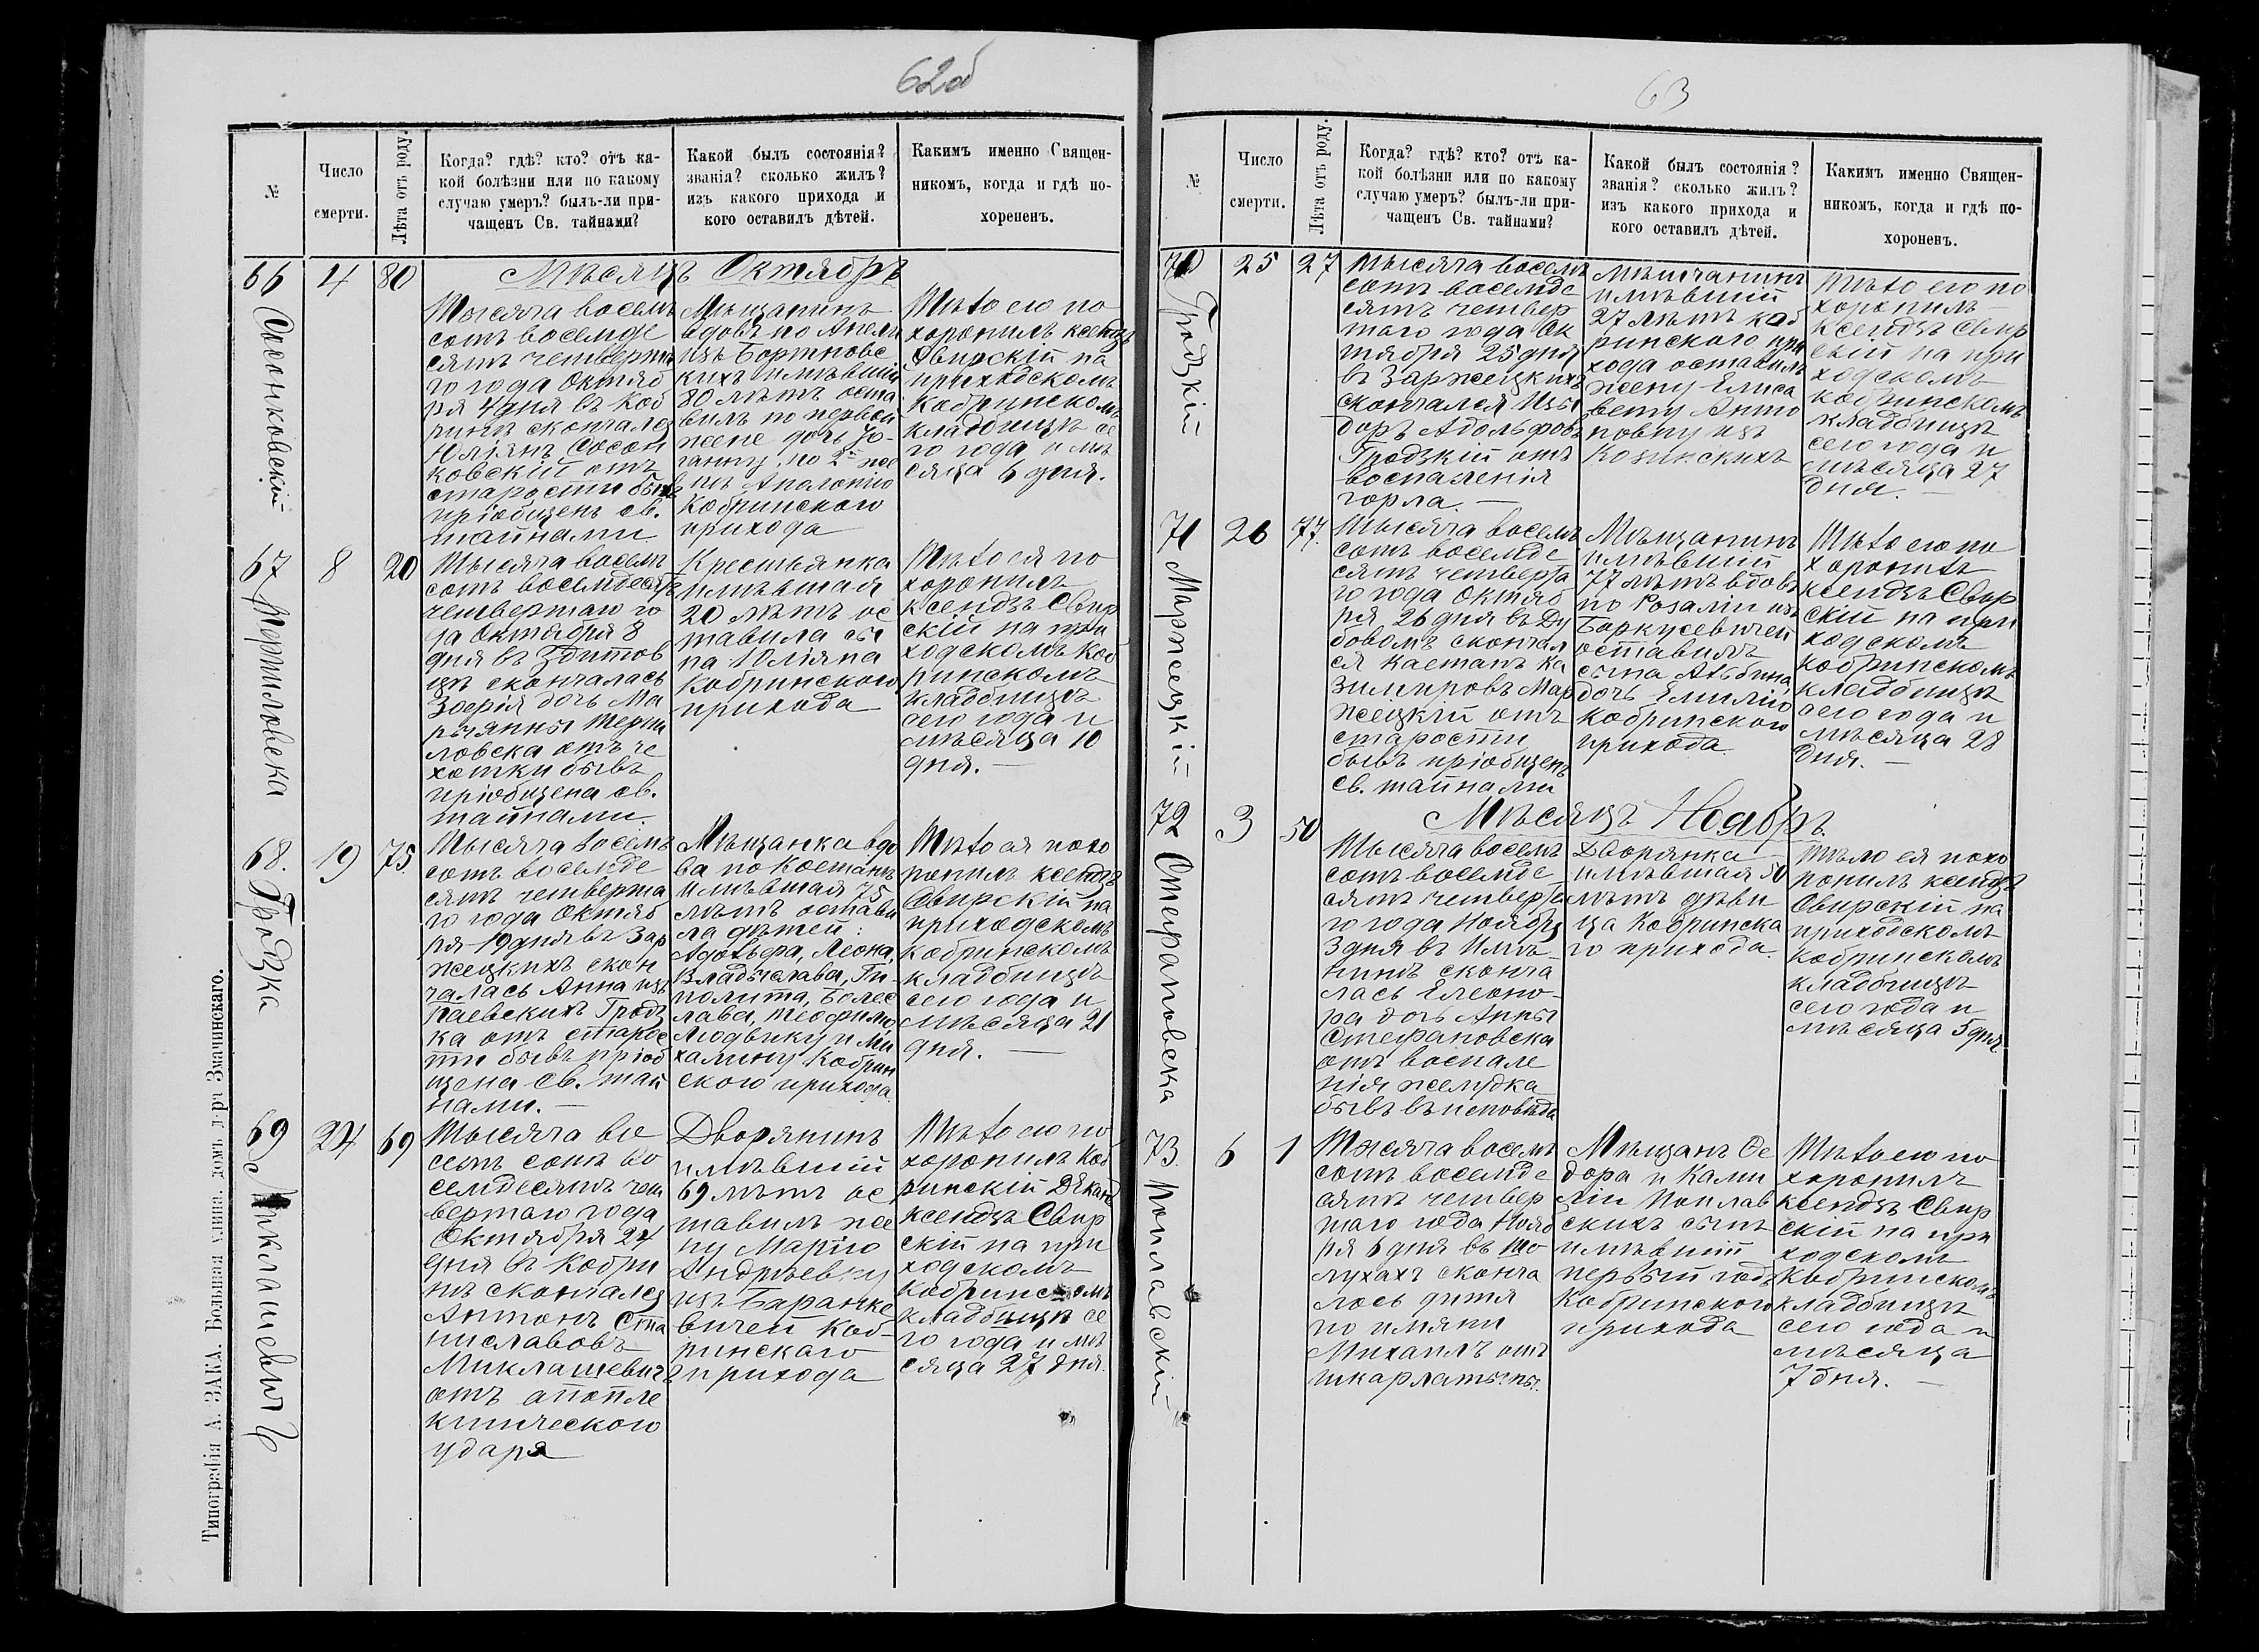 62об
№
Число
смерти.
Лѣта отъ роду.
Когда? гдѣ? кто? отъ ка-
кой болѣзни или по какому
случаю умеръ? былъ-ли при-
чащенъ Св. тайнами?
Какой былъ состоянія?
званія? сколько жилъ?
изъ какого прихода и
кого оставилъ дѣтей.
Какимъ именно Священ-
никомъ, когда и гдѣ по-
хороненъ.
Мѣсяцъ Октябрь
66
Сосонковскій
4
80
Тысяча восемь
сотъ восемьде
сятъ четверта
го года Октяб
ря 4 дня въ Коб
ринѣ скончался
Юліянъ Сосон
ковскій отъ
старости бывъ
пріобщенъ св.
тайнами
Мѣщанинъ
вдовъ по Анели
изъ Бортновс
кихъ имѣвшій
80 лѣтъ оста
вилъ по первой
жене дочь Јо-
ганну, по 2й же
нѣ Аполонію
Кобринского
прихода
Тѣло его по
хоронилъ ксендзъ
Свирскій на
приходскомъ
Кобринскомъ
кладбищѣ се
го года и мѣ
сяца 6 дня.
67
Тертиловска
8
20
Тысяча восемь
сотъ восемдесятъ
четвертаго го
да Октября 8
дня въ Здитов
цѣ скончалась
Зофія дочь Ма
рыянны Терти
ловска отъ че
хотки бывъ
пріобщена св.
тайнами.
Крестьянка
имѣвшая
20 лѣтъ ос
тавила сы
на Юліяна
Кобринского
прихода
Тѣло ея по
хоронилъ
ксендзъ Свир
скій на при
ходскомъ Коб
ринскомъ
кладбищѣ
сего года и
мѣсяца 10
дня.—
68.
Гродзка
19
75.
Тысяча восемь
сотъ восемде
сятъ четверта
го года Октяб
ря 19 дня въ Зар
жецкихъ скон
чалась Анна изъ
Паевскихъ Гродз
ка отъ старос
ти бывъ пріоб
щена св. тай
нами.—
Мѣщанка вдо
ва по Костанѣ
имѣвшая 75
лѣтъ остави
ла дѣтей:
Адольфа, Леона,
Владыслава, Ги-
полита, Болес
лава, Теофилю,
Людвику и Ми
халину Кобрин
ского прихода
Тѣло ея похо
ронилъ ксендзъ
Свирскій на
приходскомъ
Кобринскомъ
кладбищѣ
сего года и
мѣсяца 21
дня.—
69
Миклашевичъ
24
69
Тысяча во
семь сотъ во
семдесятъ чет
вертаго года
Октября 24
дня въ Кобри
нѣ скончался
Антонъ Ста
ниславовъ
Миклашевичъ
отъ апопле
ктического
удара
Дворянинъ
имѣвшій
69 лѣтъ ос
тавилъ же
ну Марію
Андреевну
изъ Баранке
вичей Коб-
ринскаго
прихода
Тѣло его по
хоронилъ Коб
ринскій Декан
ксендзъ Свир
скій на при
ходскомъ
Кобринскомъ
кладбищѣ се
го года и мѣ
сяца 27 дня.
Типографія А. ЗАКА. Большая улица домъ д-ра Змачинскаго.
63
№
Число
смерти.
Лѣта отъ роду.
Когда? гдѣ? кто? отъ ка-
кой болѣзни или по какому
случаю умеръ? былъ-ли при-
чащенъ Св. тайнами?
Какой былъ состоянія?
званія? сколько жилъ?
изъ какого прихода и
кого оставилъ дѣтей.
Какимъ именно Священ-
никомъ, когда и гдѣ по-
хороненъ.
70
Гродзкій
25
27
Тысяча восемь
сотъ восемде
сятъ четвер
таго года Ок
тября 25 дня
въ Заржецкихъ
скончался Изы
доръ Адольфовъ
Гродзкій отъ
воспаленія
горла.—
Мѣщанинъ
имѣвшій
27 лѣтъ коб
ринского при
хода оставилъ
жену Елиса
вету Анто
новну изъ
Козинскихъ
Тѣло его по
хоронилъ
ксендзъ Свир
скій на при
ходскомъ
кобринскомъ
кладбищѣ
сего года и
мѣсяца 27
дня.—
71
Маржецкій
26
77.
Тысяча восемь
сотъ восемде
сятъ четверта
го года Октяб
ря, 26 дня въ Ду
бовомъ скончал
ся Каетанъ Ка
зимировъ Мар
жецкій отъ
старости
бывъ пріобщенъ
св. тайнами
Мѣщанинъ
имѣвший
77 лѣтъ вдовъ
по Розаліи изъ
Баркусевичей
оставилъ
сына Альбина,
дочь Емилію
Кобринского
прихода.
Тѣло его по
хоронилъ
ксендзъ Свир
скій на при
ходскомъ
кобринскомъ
кладбищѣ
сего года и
мѣсяца 28
дня.—
Мѣсяцъ Ноябрь.
72
Стефановска
3
50
Тысяча восемь
сотъ восемде
сятъ четверта
го года Ноября
3 дня въ Имѣ-
нинѣ сконча
лась Елеоно-
ра дочь Анны
Стефановска
отъ воспале
нія желудка
бывъ въ исповѣда
Дворянка
имѣвшая 50
лѣтъ дѣви
ца Кобринска
го прихода.
Тѣло ея похо
ронилъ ксендзъ
Свирскій на
приходскомъ
Кобринскомъ
кладбищѣ
сего года и
мѣсяца 5 дня
73.
Поплавскій
6
1
Тысяча восемь
сотъ восемде
сятъ четвер
таго года Нояб
ря 6 дня въ
лухахъ сконча
лось дитя
по имяни
Михаилъ отъ
шкарлатыны.
Мѣщанъ Ѳе
дора и Ками
ліи Поплав
скихъ сынъ
имѣвшій
первый годъ
Кобринского
прихода
Тѣло его по
хоронилъ
ксендзъ Свир
скій на при
ходскомъ
Кобринскомъ
кладбищѣ
сего года и
мѣсяца
7 дня.—